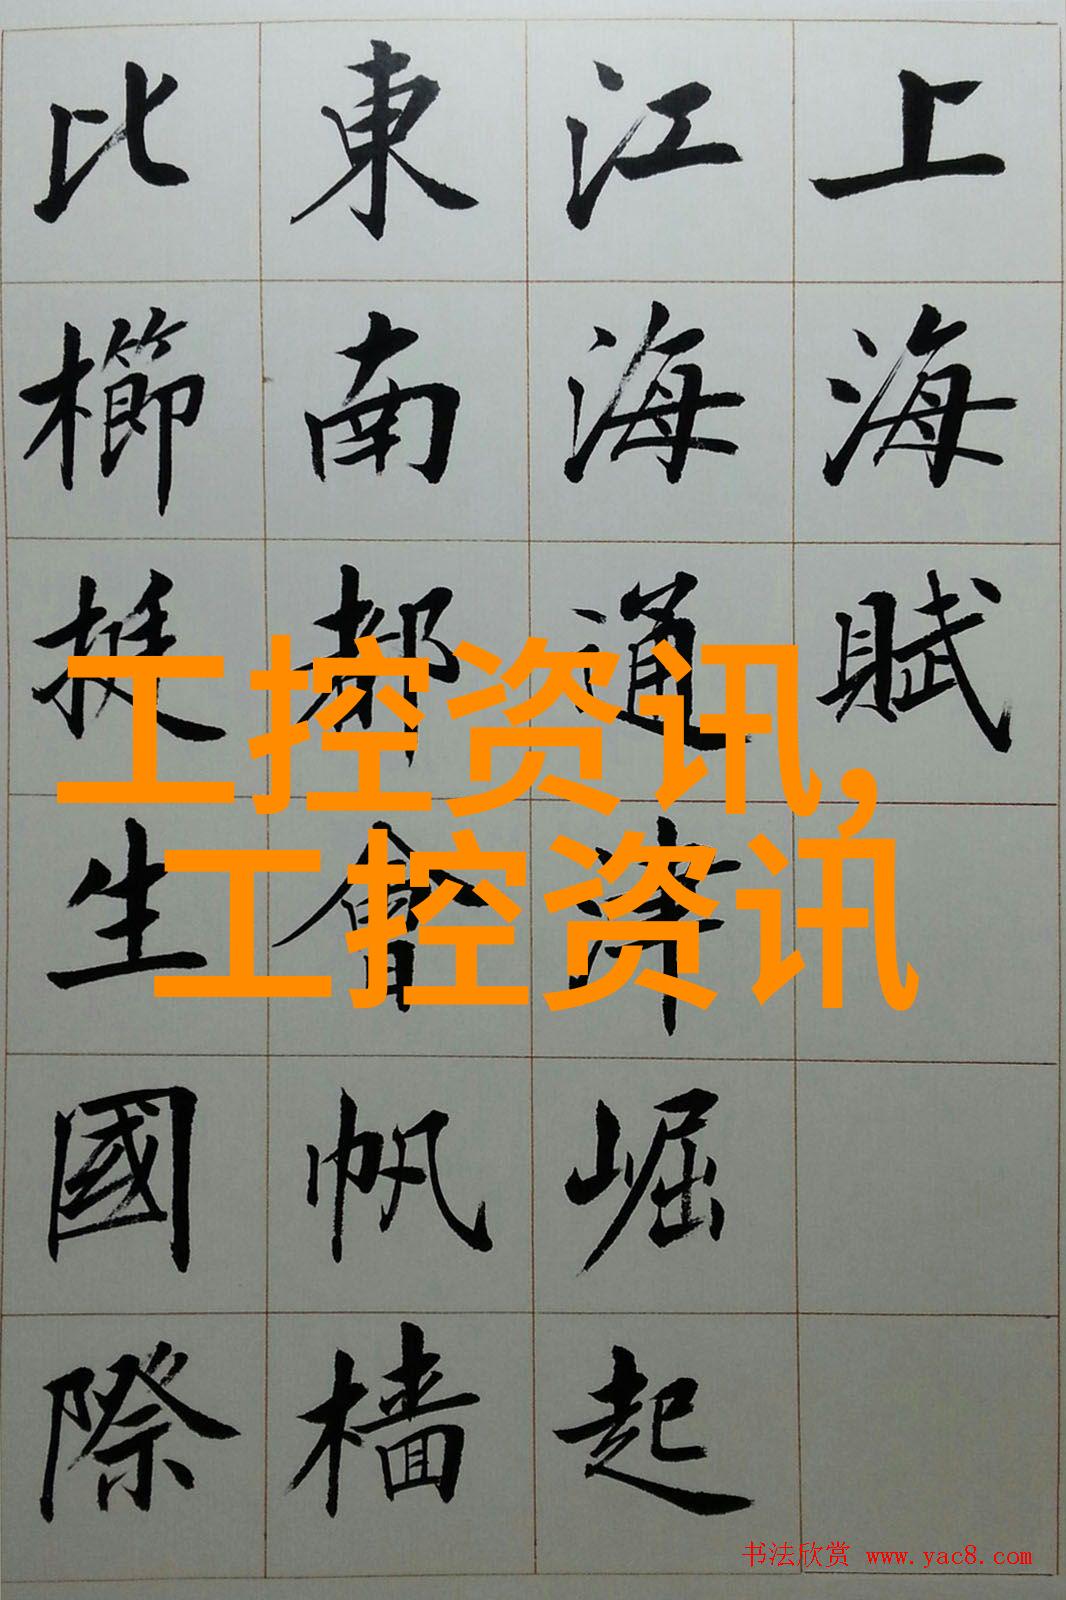 上海賦
江海通津崛起
東南都會帆檣
比櫛挺生國際
工控资讯,
工控资讯
书法欣赏 www.yac8.com